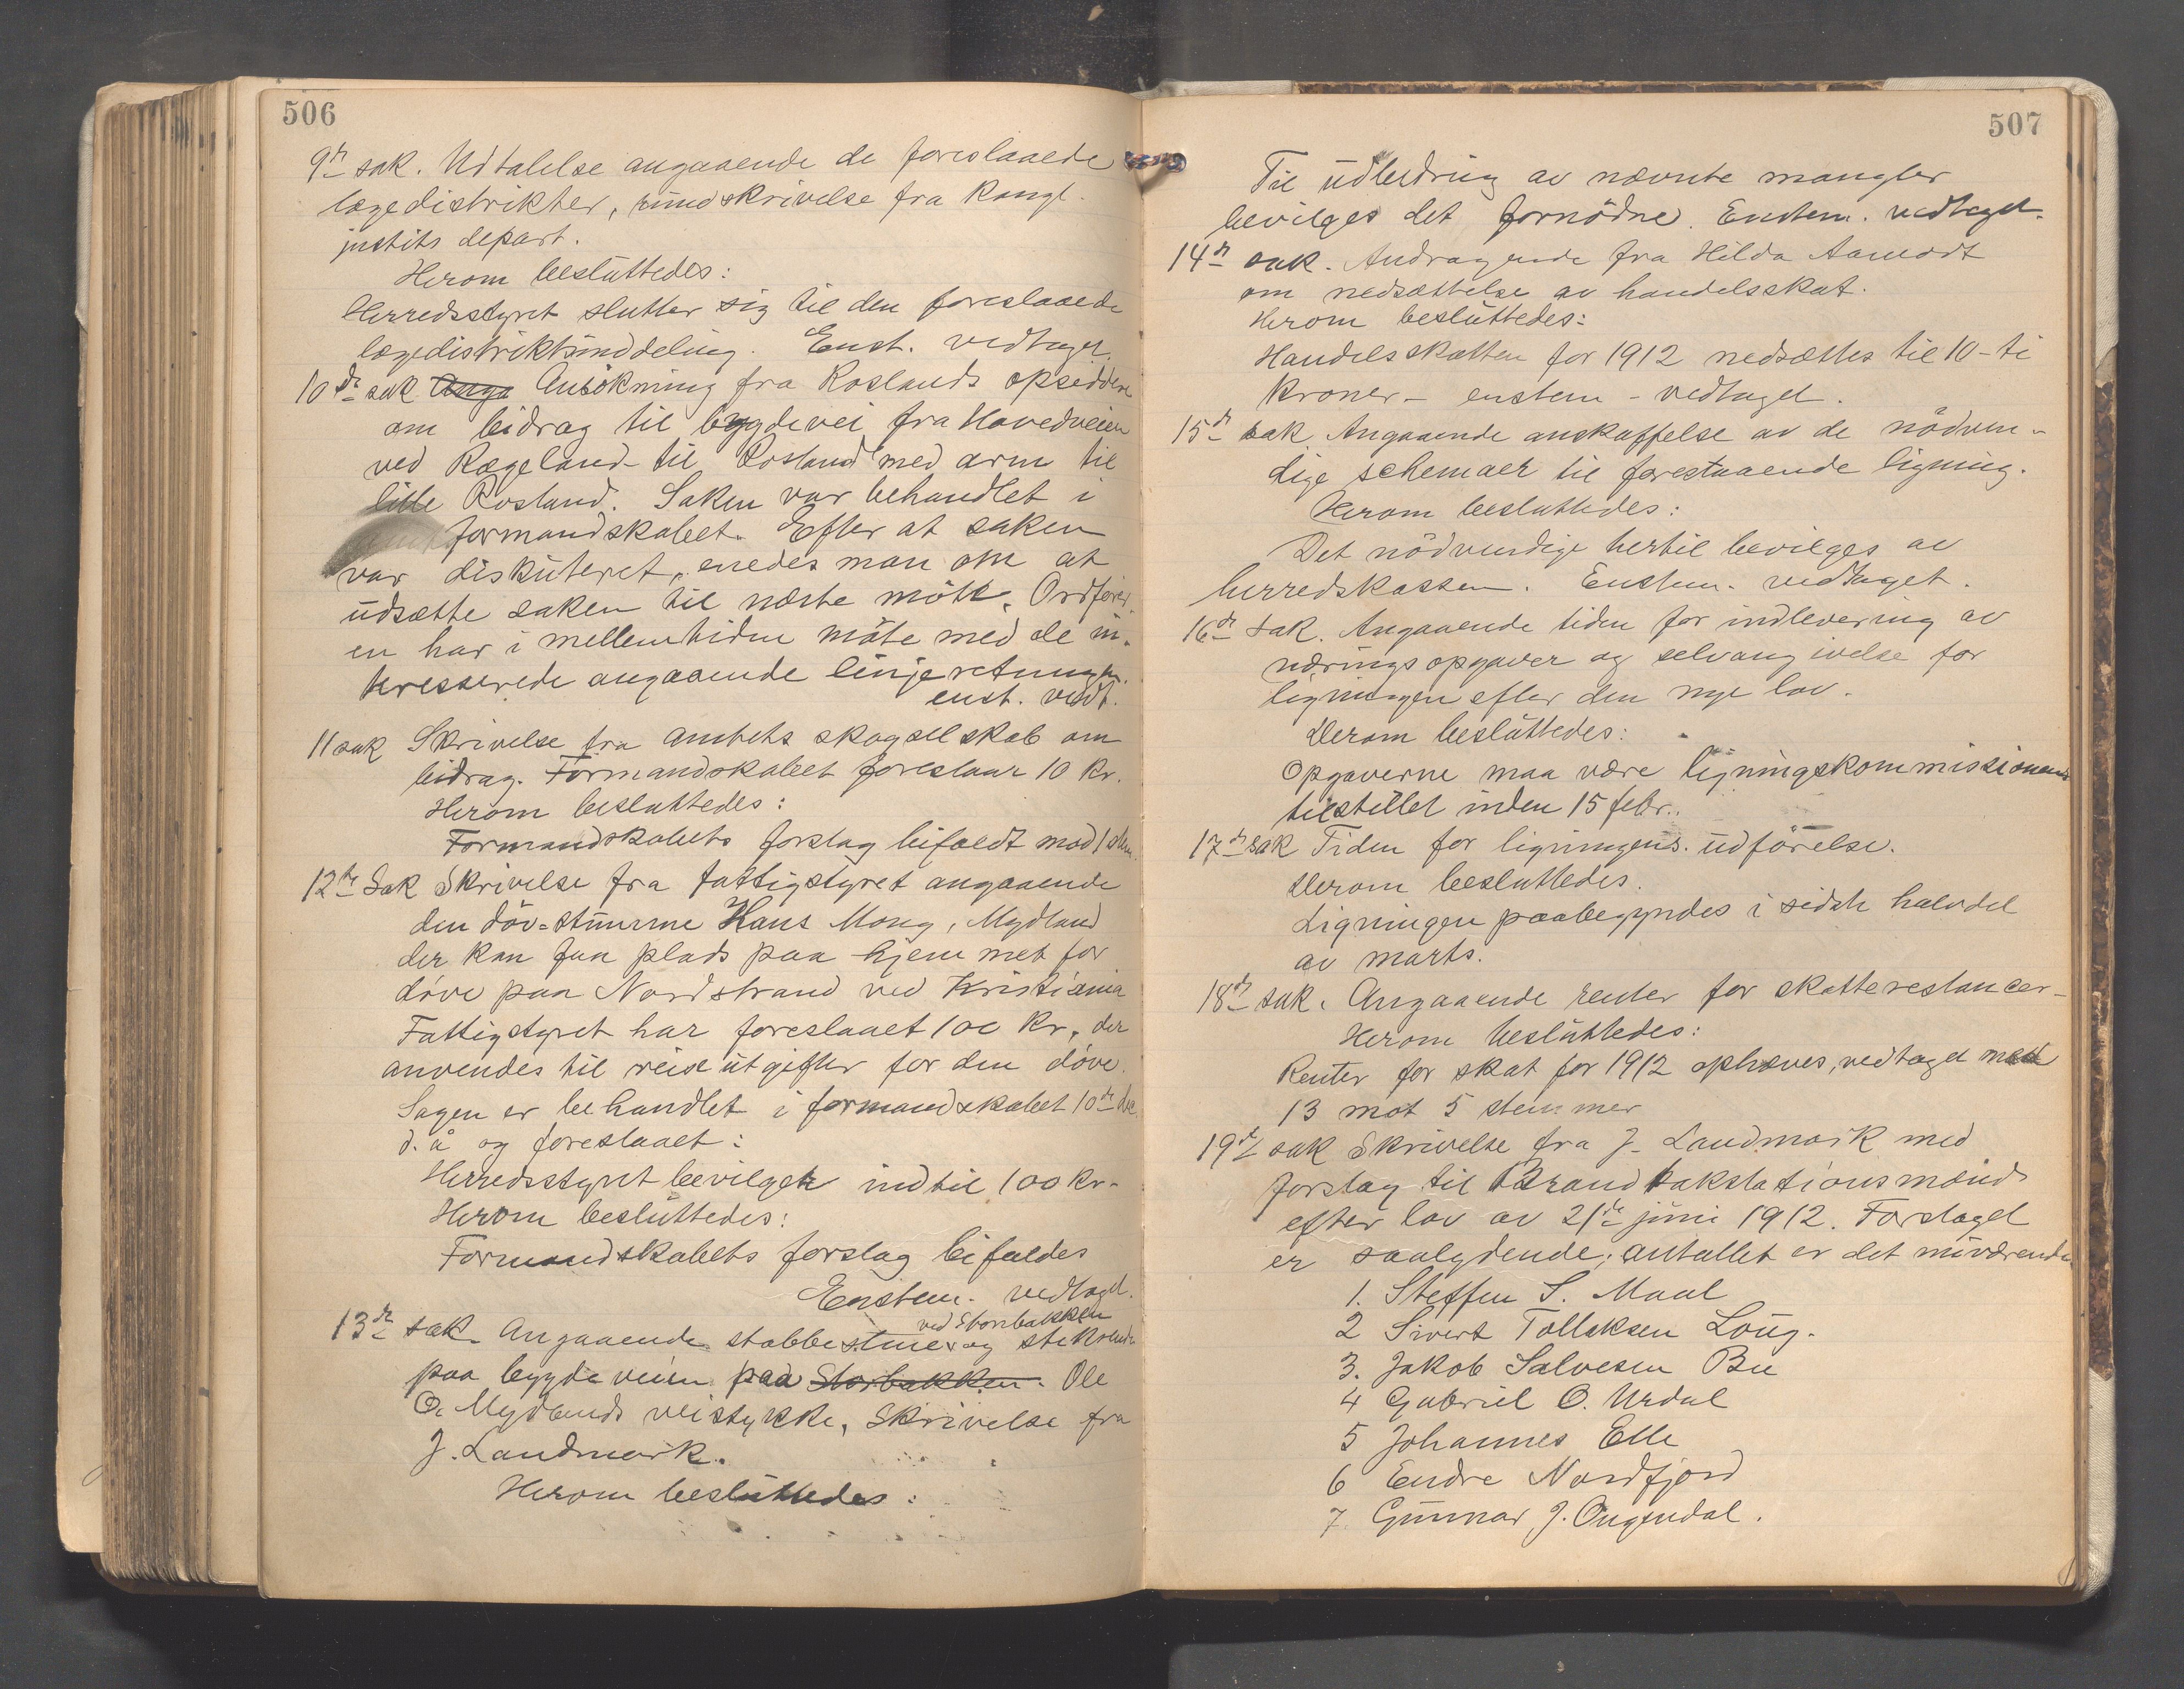 506
9de sak. Udtalelse angaaende de foreslaaede
lægedistrikter, rundskrivelse fra Kongl.
justits depart.
Herom besluttedes:
Herredsstyret slutter sig til den foreslaaede
lægedistriktsinddeling. Enst. vedtaget.
10de sak Anga Ansökning fra Roslands opsiddere
om bidrag til bygdevei fra Hovedveien
ved Rægeland til Rosland med arm til
lille Rosland. Saken var behandlet i
formandskabet. Efter at saken
var diskuteret, enedes man om at
udsætte saken til næste möte. Ordförer-
en har i mellemtiden möte med de in-
teresserede angaaende linjeretningen.
enst. vedt.
11 sak Skrivelse fra amtets skogselskab om
bidrag. Formandskabet foreslaar 10 kr.
Herom besluttedes:
Formandskabets forslag bifaldt mod 1 stem.
12te Sak Skrivelse fra fattigstyret angaaende
den döv-stumme Hans Mong, Mydland
der kan faa plads paa hjemmet for
döve paa Nordstrand ved Kristiania
Fattigstyret har foreslaaet 100 kr. der
anvendes til reiseutgifter for den döve.
Sagen er behandlet i formandskabet 10de dec
d. å og foreslaaet:
Herredsstyret bevilger indtil 100 kr.
Herom besluttedes:
Formandskabets forslag bifaldes
Enstem. vedtaget.
ved Storbakken
13de sak. Angaaende stabbestener og
paa bygdeveien paa Storbakken. Ole
O. Mydlands veistykke, Skrivelse fra
J. Landmark.
Herom besluttedes:
507
Til udbedring av nævnte mangler
bevilges det fornödne. Enstem. vedtaget.
14de sak. Andragende fra Hilda Aamodt
om nedsættelse av handelsskat.
Herom besluttedes:
Handelsskatten for 1912 nedsættes til 10-ti
kroner - enstem - vedtaget.
15de sak Angaaende anskaffelse av de nödven-
dige schemaer til forestaaende ligning.
Herom besluttedes:
Det nödvendige hertil bevilges av
herredskassen. Enstem. vedtaget.
16de sak. Angaaende tiden for indlevering av
næringsopgaver og selvangivelse for
ligningen efter den nye lov.
Herom besluttedes:
Opgaverne maa være ligningskommissionen
tilstillet inden 15 febr.
17de sak Tiden for ligningens udförelse.
Herom besluttedes.
Ligningen paabegyndes i sidste halvdel
av marts.
18de sak. Angaaende renter for skatterestancer-
Herom besluttedes:
Renter for skat for 1912 ophæves, vedtaget med
13 mot 5 stemmer
19de sak Skrivelse fra J. Landmark med
forslag til Brandtakstationsmænd
efter lov av 21de juni 1912. Forslaget
er saalydende; antallet er det nuværende
1. Steffen S. Maal
2 Sivert Tollaksen Loug.
3. Jakob Salvesen Bu
4 Gabriel O. Urdal
5 Johannes Elle
6 Endre Nordfjord
7. Gunnar J. Ougendal.